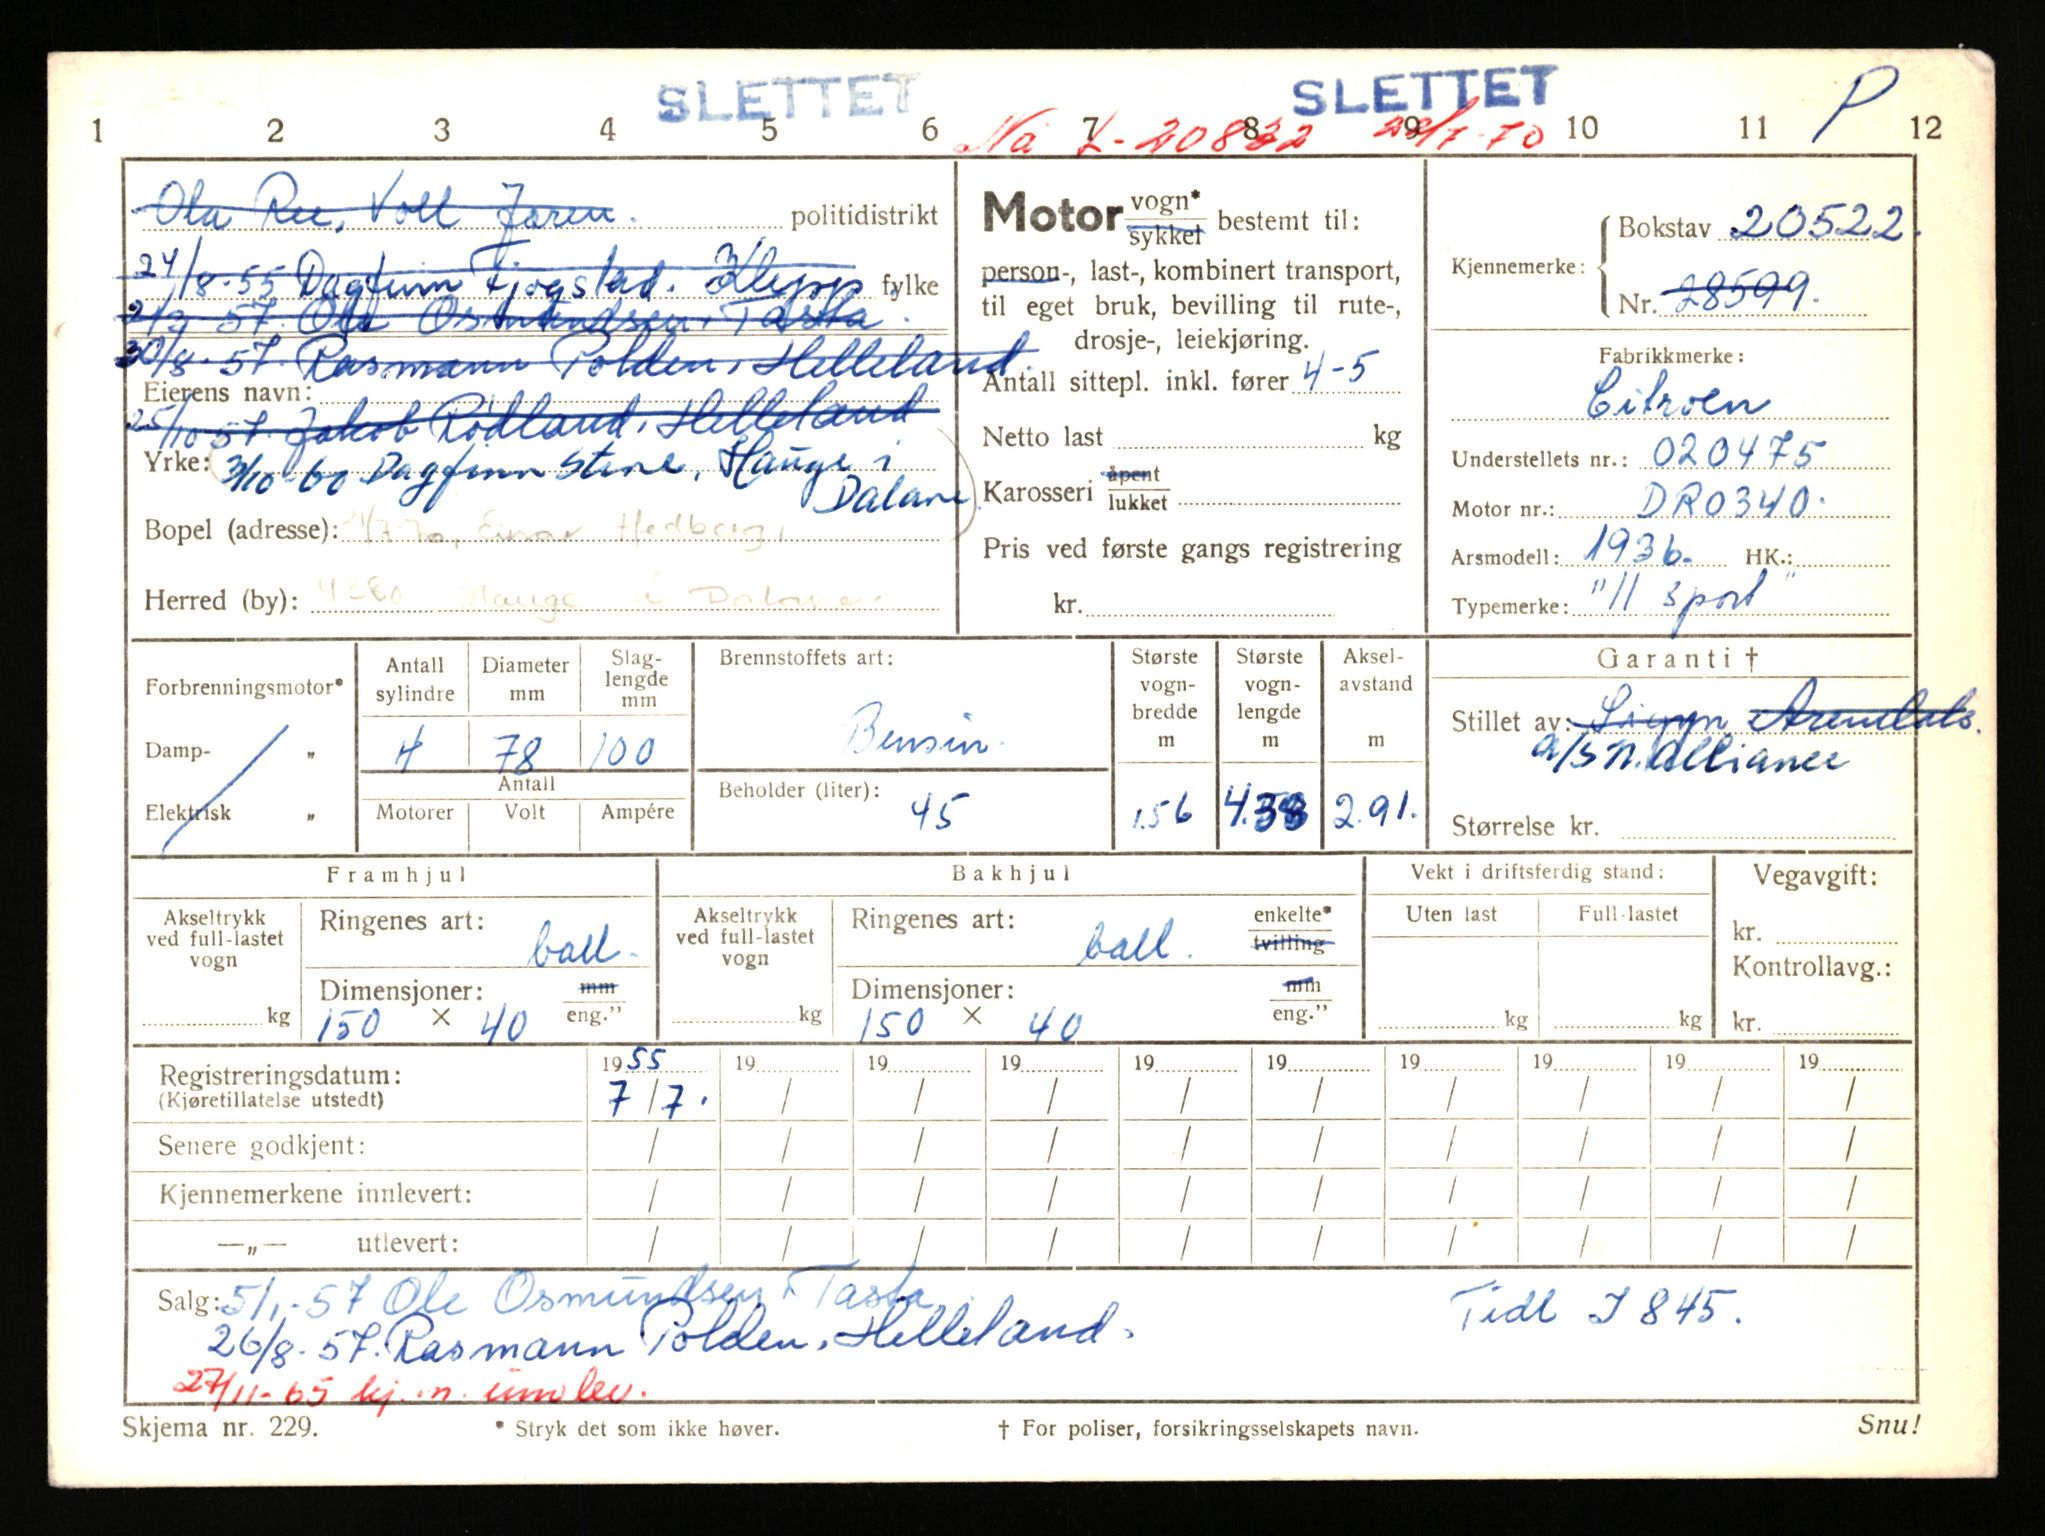 SLETTET SLETTET P
1 2 3 4 5 6 7 8 9 10 11 12
Nå L-20832
Ola Ree, Voll Jæren. politidistrikt
24/8-55 Dagfinn Fjogstad. Klepp fylke
57. Ole Osmundsen, Tasta.
30/8-57. Rasmann Polden, Helleland.
Eierens navn:
25/10 57. Jakob Rödland, Helleland
Yrke: 3/10-60 Dagfinn Stene, Hauge i
Dalane.
Bopel (adresse): Einar Hedberg,
Herred (by): 4380 Hauge i Dalane.
Motor vogn* / sykkel bestemt til:
person-, last-, kombinert transport,
til eget bruk, bevilling til rute-,
drosje-, leiekjøring.
Antall sittepl. inkl. fører 4-5
Netto last kg
Karosseri åpent / lukket
Pris ved første gangs registrering
kr.
Kjennemerke: Bokstav 20522.
Nr. 28599.
Fabrikkmerke:
Citroen
Understellets nr.: 020475
Motor nr.: DR0340.
Arsmodell: 1936. HK.:
Typemerke: "11 sport"
Forbrenningsmotor*
Damp- "
Elektrisk "
Antall sylindre Diameter mm Slag-lengde mm
4 78 100
Antall
Motorer Volt Ampére
Brennstoffets art:
Bensin.
Beholder (liter):
45
Største vogn-bredde m
1.56
Største vogn-lengde m
4.38
Aksel-avstand m
2.91.
Garanti †
Stillet av:
a/s N. Alliance
Størrelse kr.
Framhjul
Akseltrykk ved full-lastet vogn
kg
Ringenes art:
ball.
Dimensjoner: mm / eng."
150 × 40
Bakhjul
Akseltrykk ved full-lastet vogn
kg
Ringenes art: enkelte* / tvilling
ball.
Dimensjoner: mm / eng."
150 × 40
Vekt i driftsferdig stand:
Uten last Full-lastet
kg kg
Vegavgift:
kr.
Kontrollavg.:
kr.
Registreringsdatum: 1955 19 19 19 19 19 19 19 19 19
(Kjøretillatelse utstedt) 7/7. / / / / / / / / /
Senere godkjent: / / / / / / / / / /
Kjennemerkene innlevert: / / / / / / / / / /
—„— utlevert: / / / / / / / / / /
Salg: 5/1-57 Ole Osmundsen, Tasta
26/8-57. Rasmann Polden, Helleland.
27/11-65 kj. n. innlev.
Tidl I 845.
Skjema nr. 229. * Stryk det som ikke høver. † For poliser, forsikringsselskapets navn. Snu!